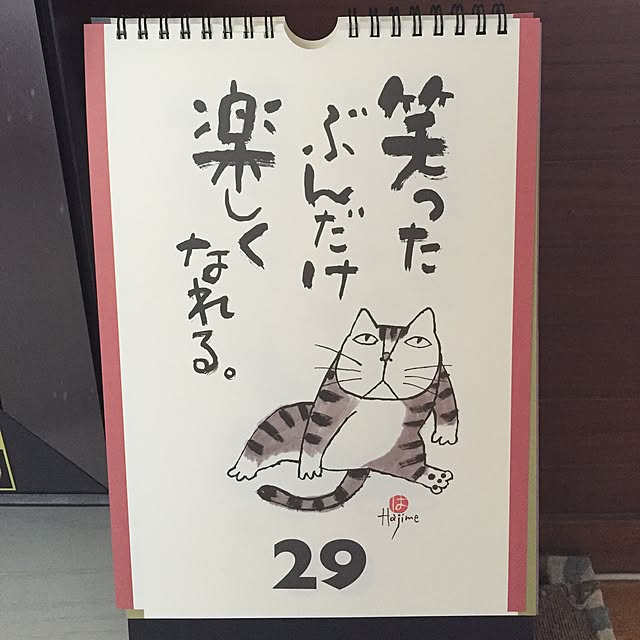 笑った
ぶんだけ
楽しく
なれる。
は
Hajime
29